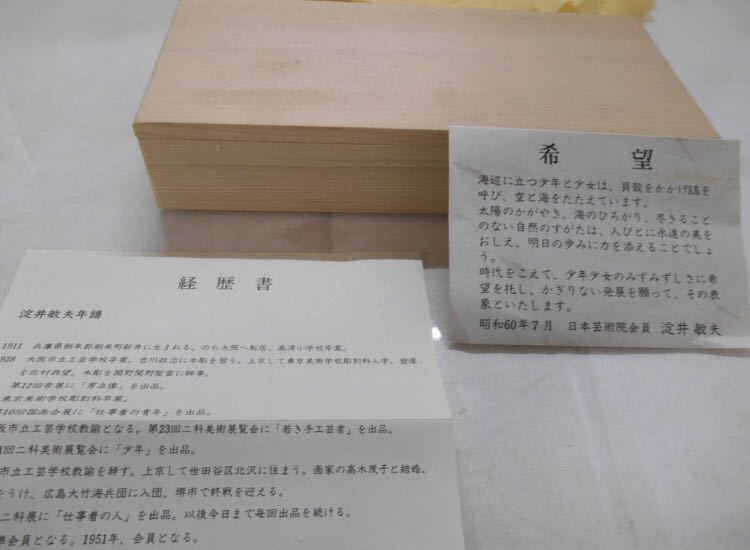 希望
海辺に立つ少年と少女は、貝殻をかかげ鳥を
呼び、空と海をたたえています。
太陽のかがやき、海のひろがり、尽きること
のない自然のすがたは、人びとに永遠の美を
おしえ、明日の歩みに力を添えることでしょ
う。
時代をこえて、少年少女のみずみずしさに希
望を托し、かぎりない発展を願って、その表
象といたします。
昭和60年7月 日本芸術院会員 淀井敏夫
経歴書
淀井敏夫年譜
1911 兵庫県朝来郡朝来町新井に生まれる。のち大阪へ転居。高津小学校卒業。
928 大阪市立工芸学校卒業。吉川政治に木彫を習う。上京して東京美術学校彫刻科入学。塑像
を北村西望、木彫を関野関野聖雲に師事。
第12回帝展に「男立像」を出品。
東京美術学校彫刻科卒業。
10回国画会展に「仕事着の青年」を出品。
阪市立工芸学校教諭となる。第23回二科美術展覧会に「若き手工芸者」を出品。
回二科美術展覧会に「少年」を出品。
市立工芸学校教諭を辞す。上京して世田谷区北沢に住まう。画家の高木茂子と結婚。
をうけ、広島大竹海兵団に入団、堺市で終戦を迎える。
二科展に「仕事着の人」を出品。以後今日まで毎回出品を続ける。
会員となる。1951年、会員となる。